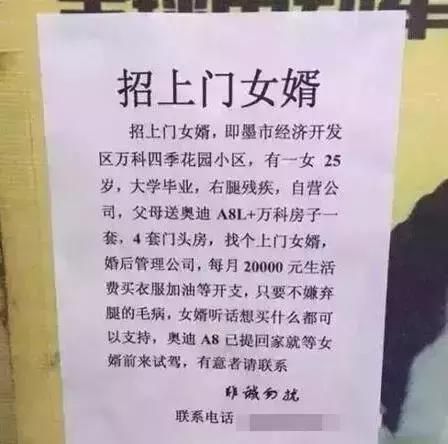 招上门女婿
招上门女婿，即墨市经济开发
区万科四季花园小区，有一女 25
岁，大学毕业，右腿残疾，自营公
司，父母送奥迪 A8L+万科房子一
套，4 套门头房，找个上门女婿，
婚后管理公司，每月 20000 元生活
费买衣服加油等开支，只要不嫌弃
腿的毛病，女婿听话想买什么都可
以支持，奥迪 A8 已提回家就等女
婿前来试驾，有意者请联系
非诚勿扰
联系电话